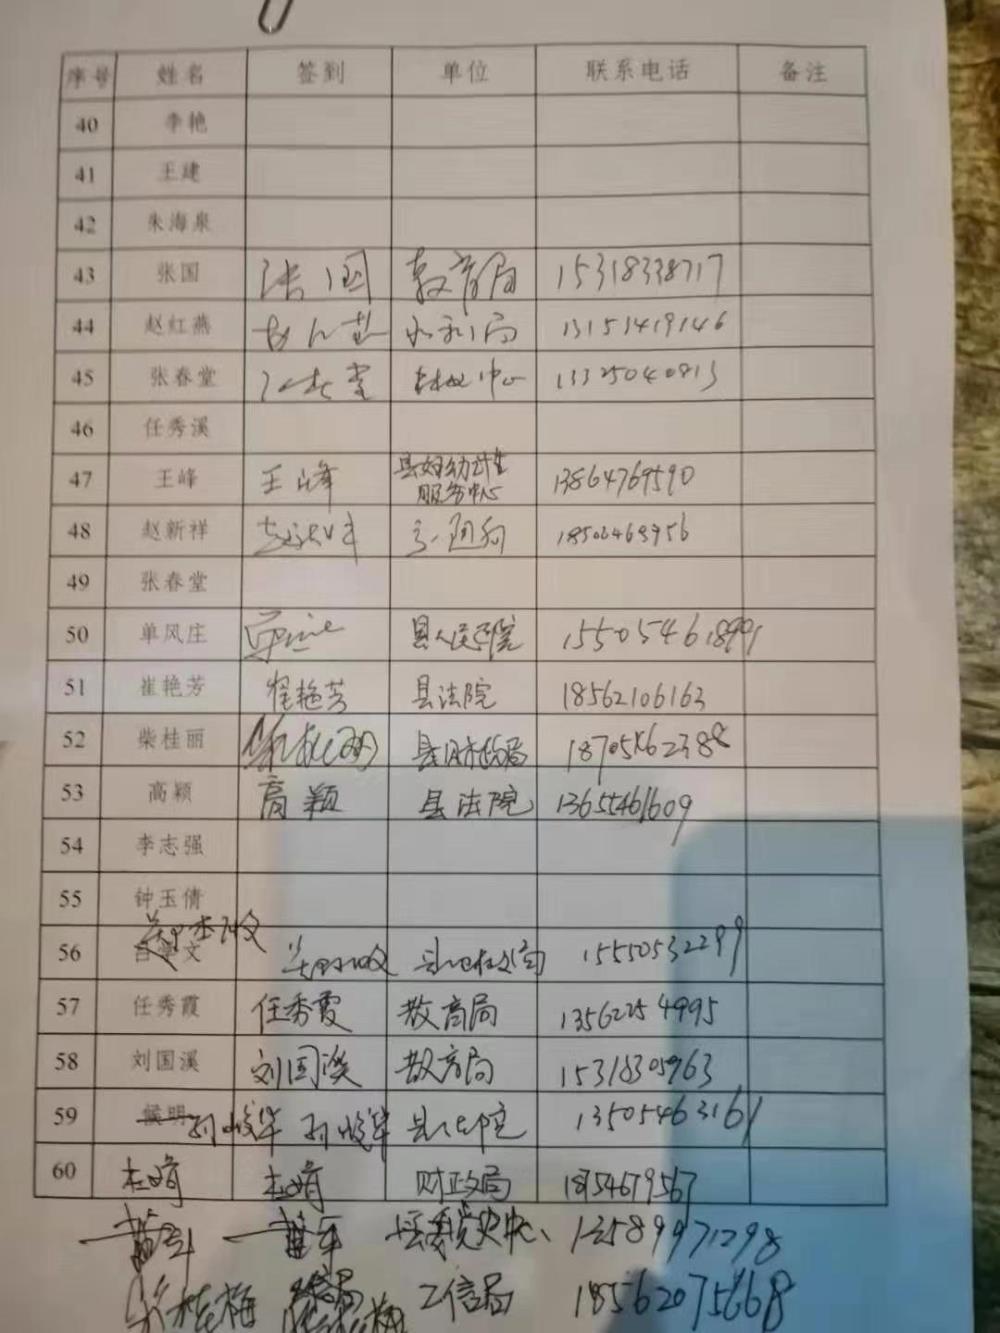 序号 姓名 签到 单位 联系电话 备注
40 李艳
41 王建
42 朱海泉
43 张国 张国 教育局 15318338717
44 赵红燕 水利局 13151419146
45 张春堂 张春堂 中心 13325040813
46 任秀溪
47 王峰 王峰 县妇幼计生服务中心 13864769590
48 赵新祥 赵新祥
49 张春堂
50 单风庄 县人民医院 15505461899
51 崔艳芳 崔艳芳 县法院 18562106163
52 柴桂丽 柴桂丽 县财政局
53 高颖 高颖 县法院 13655461609
54 李志强
55 钟玉倩
56 15550532299
57 任秀霞 任秀霞 教育局 13562254995
58 刘国溪 刘国溪 教育局 15318305963
59 候明 孙峻华 孙峻华 县法院 13505463161
60 杜娟 杜娟 财政局 1854679567
13589971298
桂梅 桂梅 工信局